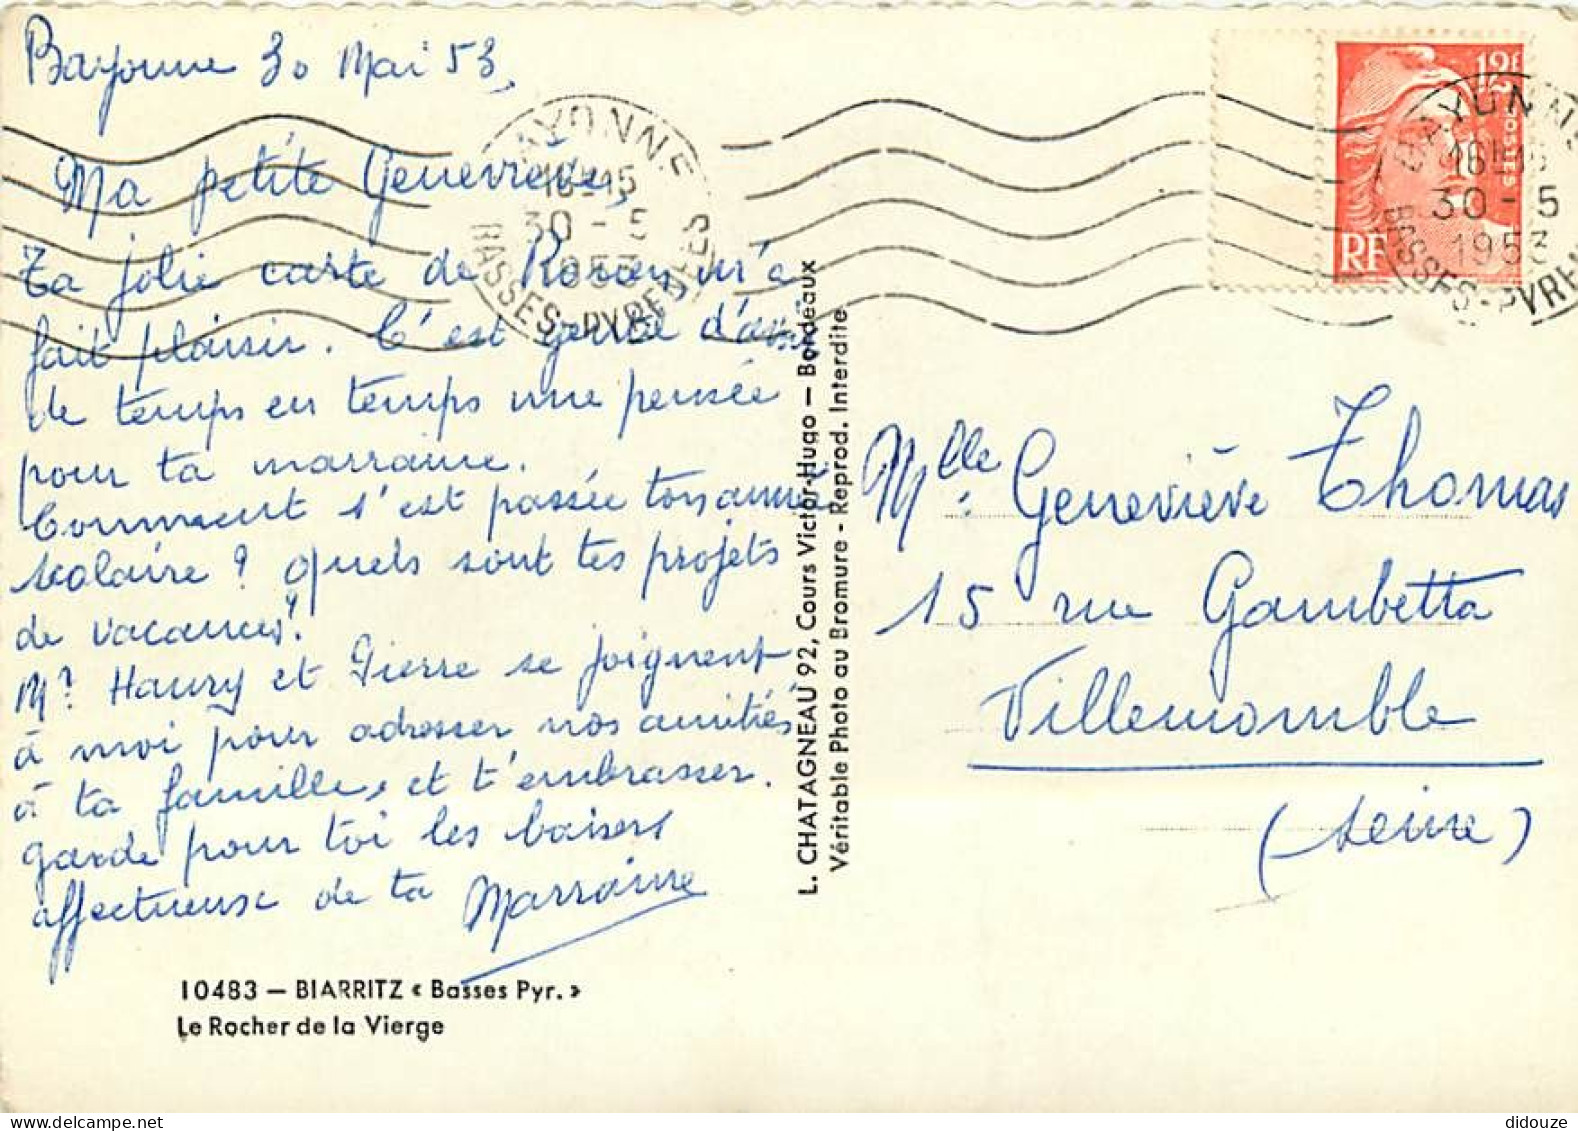 Bayonne 30 Mai 53,
Ma petite Geneviève,
Ta jolie carte de Rouen, m'a
fait plaisir. C'est gentil d'avoir
de temps en temps une pensée
pour ta marraine.
Comment s'est passée ton année
scolaire ? Quels sont tes projets
de vacances ?
Mr Haury et Pierre se joignent
à moi pour adresser nos amitiés
à ta famille, et t'embrasser.
garde pour toi les baisers
affectueux de ta Marraine
10483 — BIARRITZ « Basses Pyr. »
Le Rocher de la Vierge
L. CHATAGNEAU 92, Cours Victor-Hugo — Bordeaux
Véritable Photo au Bromure - Reprod. Interdite
BAYONNE
16H15
30 - 5
1953
BASSES-PYRENEES
12F
POSTES
RF
BAYONNE
16H15
30 - 5
1953
BASSES-PYREN
Mlle Geneviève Thomas
15 rue Gambetta
Villemomble
(Seine)
didouze